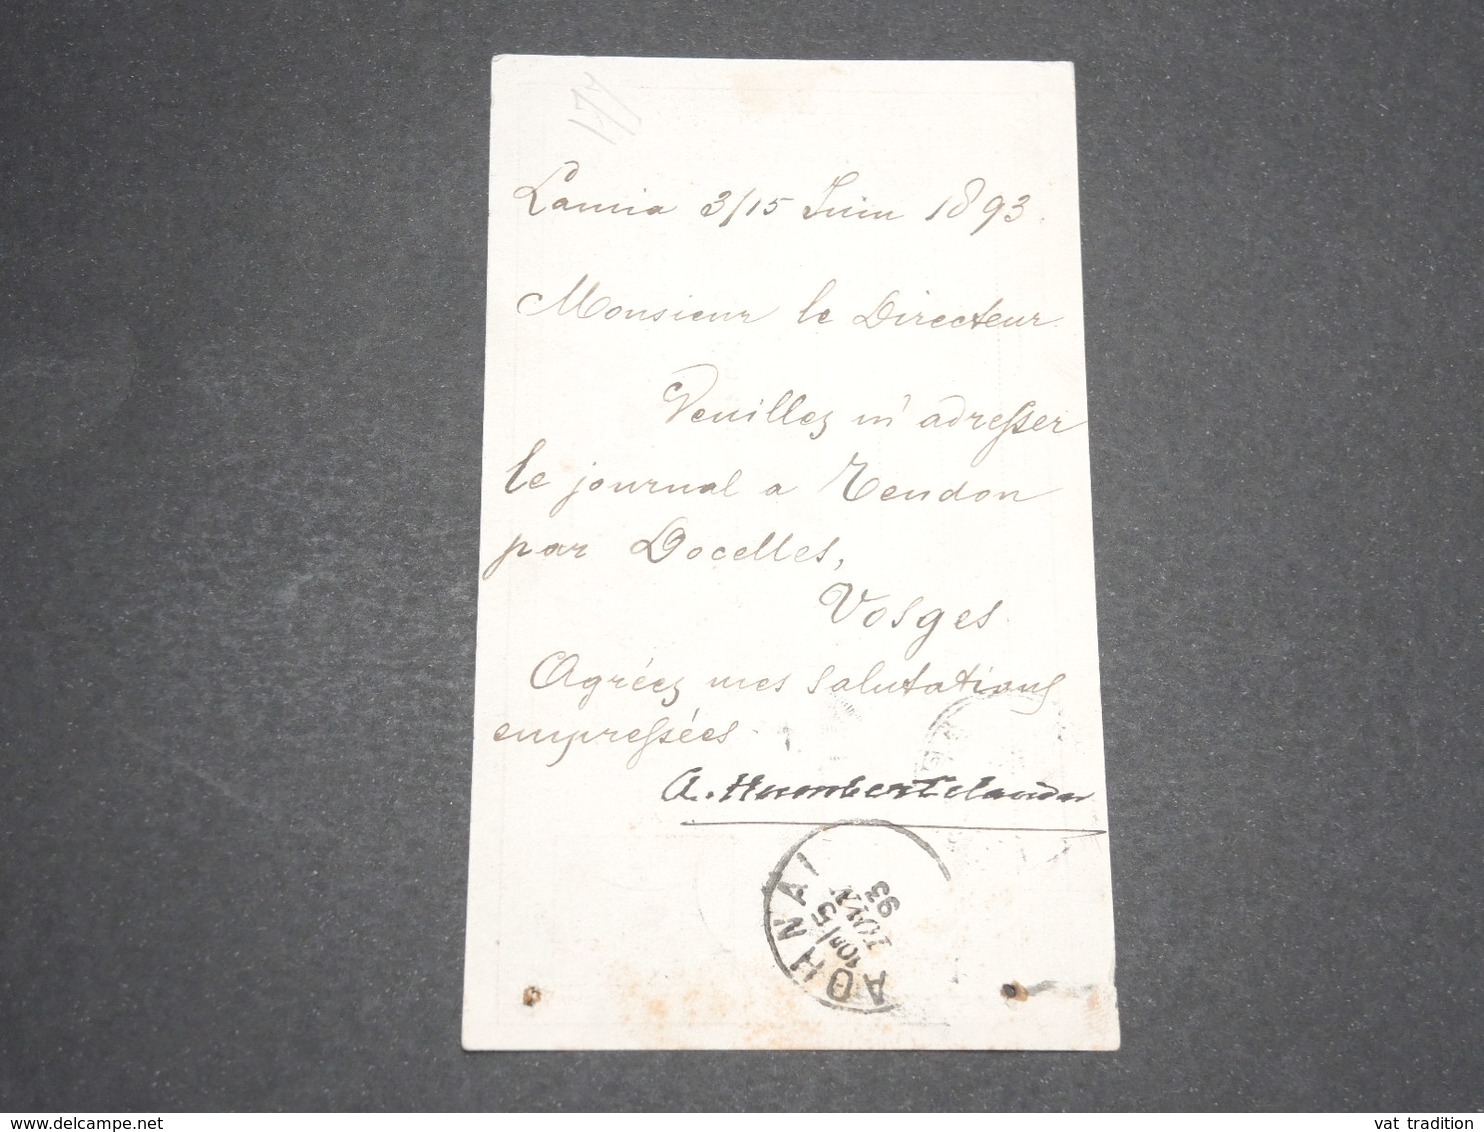 177
Lamia 3/15 Juin 1893.
Monsieur le Directeur
Veuillez m'adresser
le journal a Tendon
par Docelles,
Vosges
Agréez mes salutations
empressées
A. Humbert
ΑΘΗΝΑΙ
5
ΙΟΥΝ
93
vat tradition